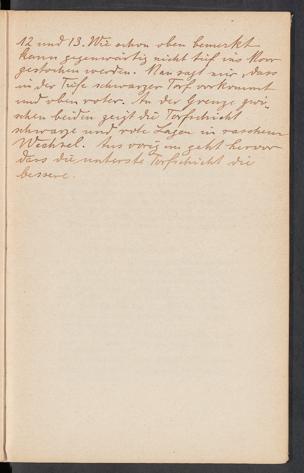 12 und 13. Wie schon oben bemerkt
kann gegenwärtig nicht tief ins Moor
gestochen werden. Man sagt mir, dass
in der Tiefe schwarzer Torf vorkommt
und oben roter. An der Grenze zwi-
schen beiden zeigt die Torfschicht
schwarze und rote Lagen in raschem
Wechsel. Aus vorigem geht hervor
dass die unterste Torfschicht die
bessere.